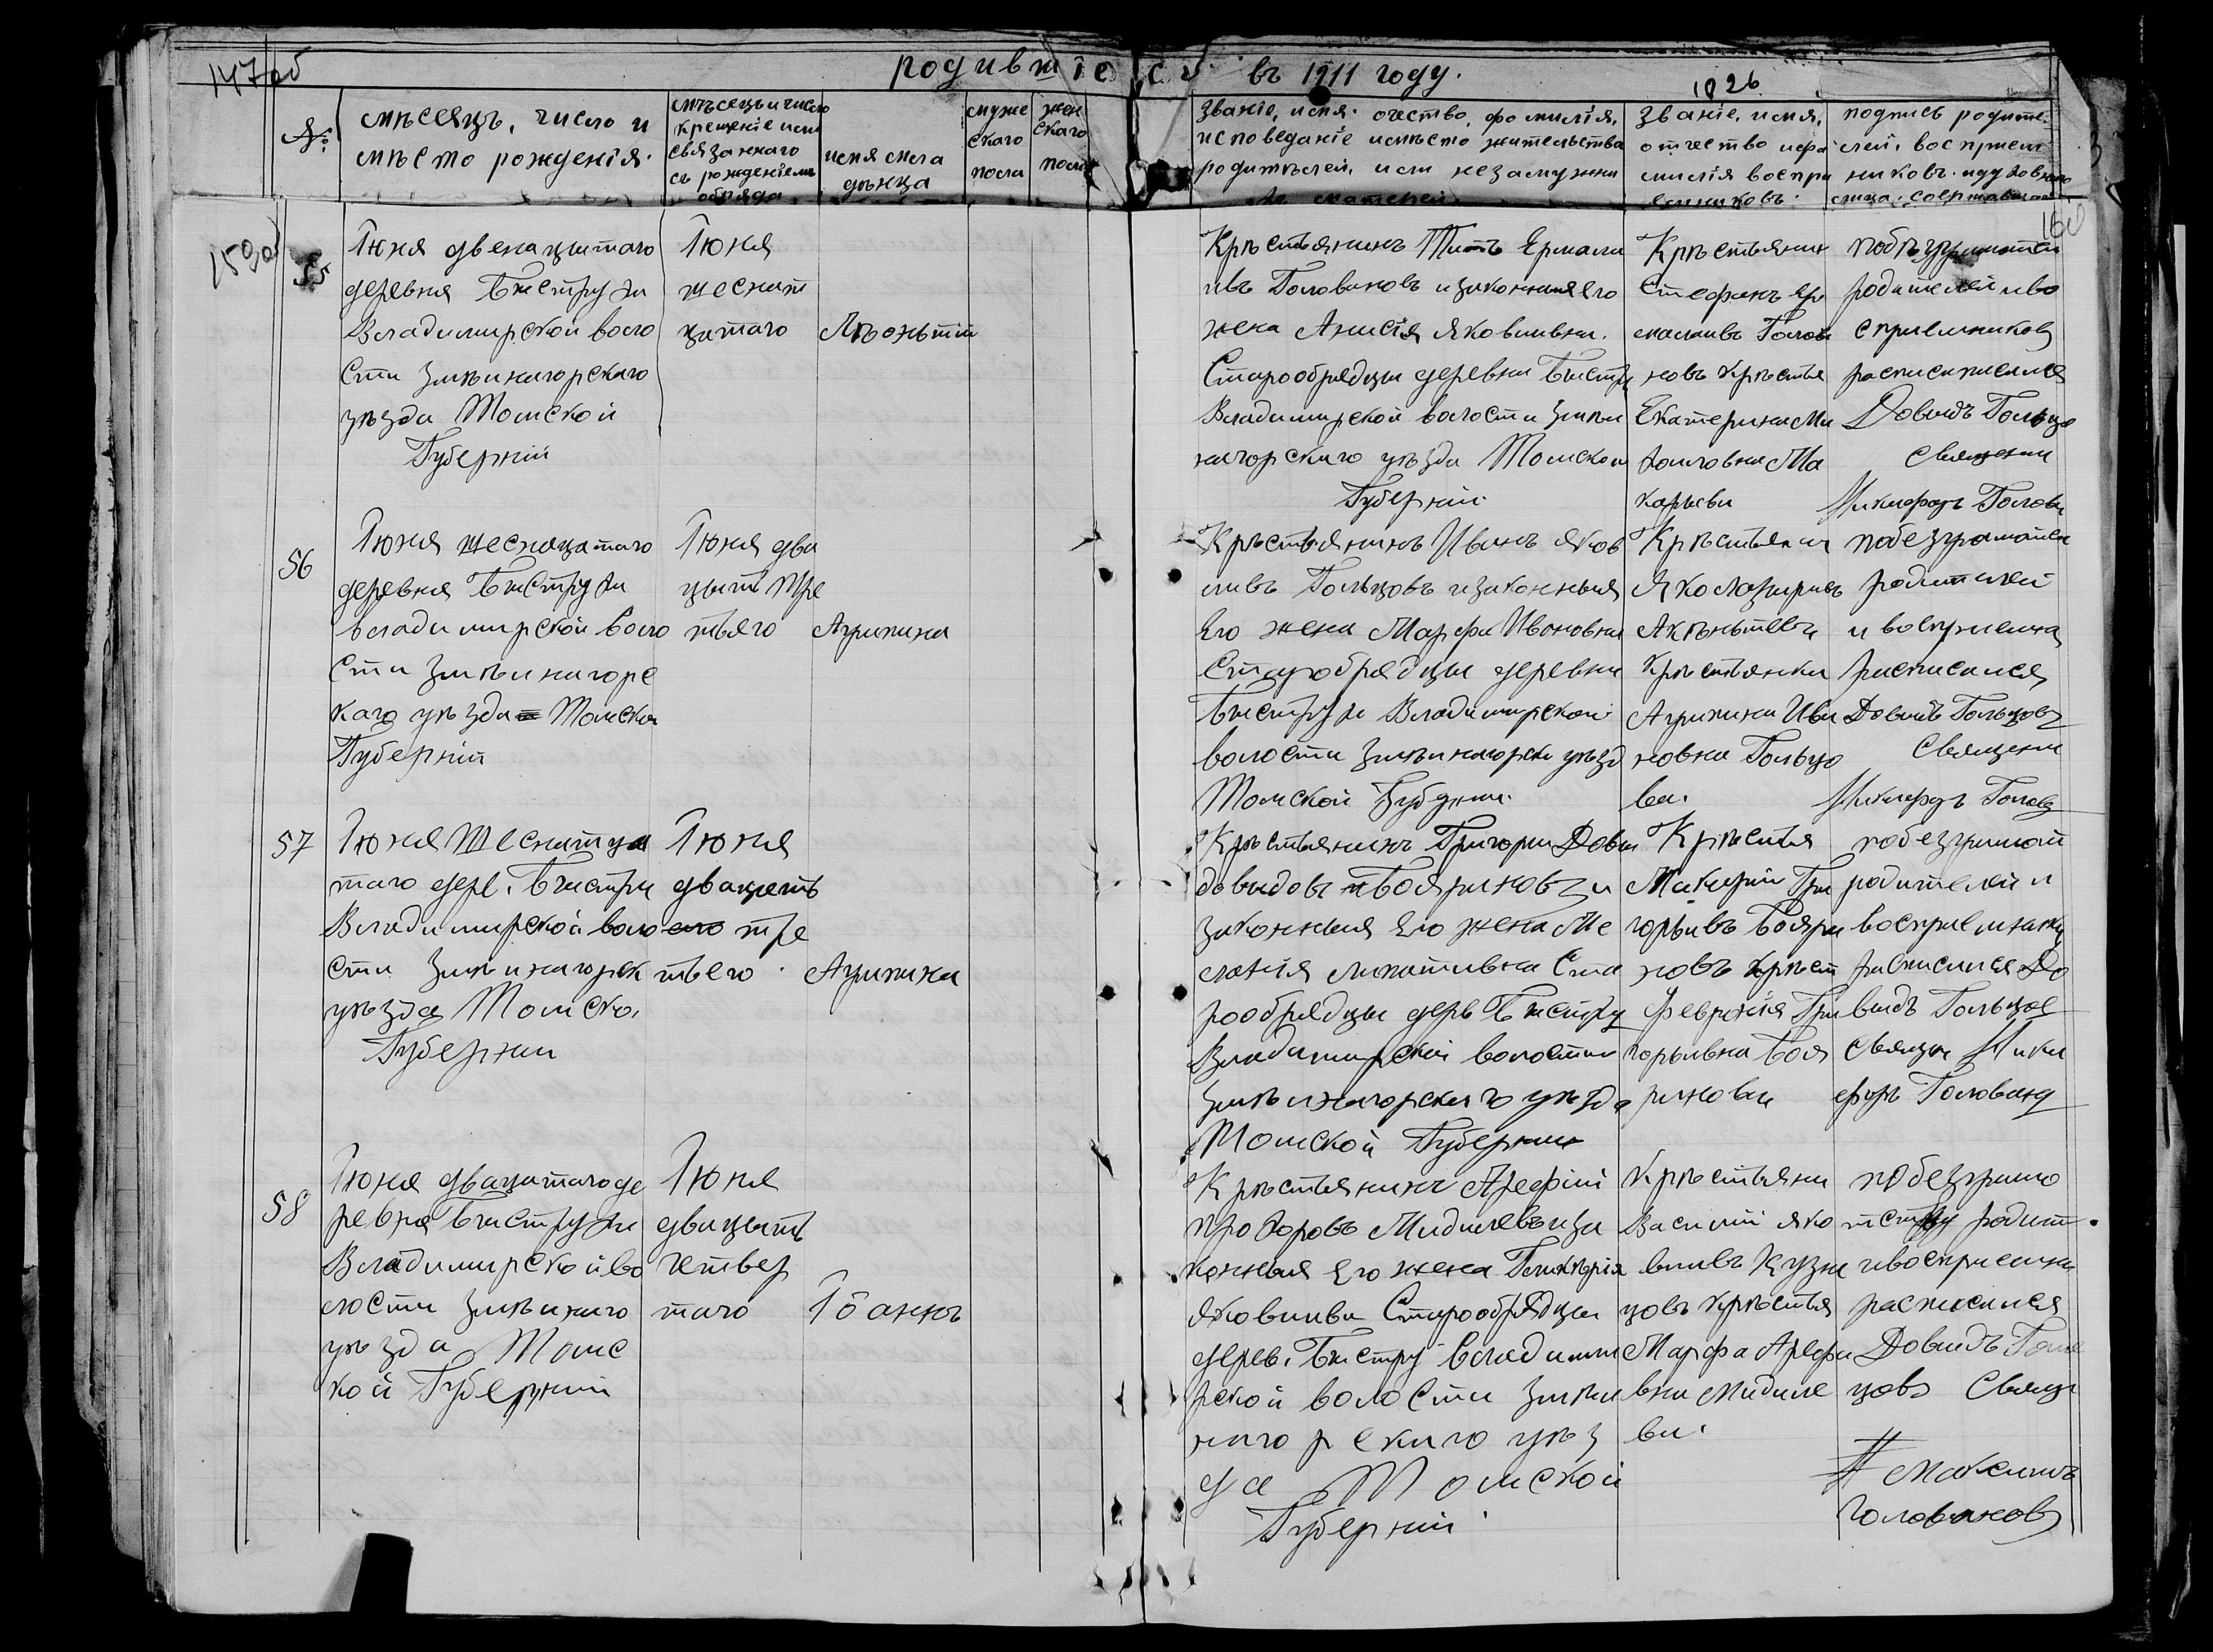 147об
родившіеся въ 1911 году.
1926
№
мѣсяцъ, число и
мѣсто рожденія.
мѣсецъ и число
крещеніе или
связаннаго
съ рожденіемъ
обряда
имя мла
дѣнца
мужс
скаго
пола
жен
скаго
пола
званіе, имя. очество, фомилія,
исповеданіе иместо жительства
родитѣлей, или незамужни
хъ матерей.
званіе, имя,
отчество ифа
милія воспри
емниковъ.
подпись родите
лей, восприем
никовъ. идуховного
лица. совршавшаго
159об
55
Іюня двенацытаго
деревня Быструхи
Владимирской воло
сти Змѣиногорскаго
уѣзда Томской
Губерніи
Іюня
шеснат
цатаго
Лѣоньтіи
160
Крѣстьянинъ Титъ Ермали
ивъ Головановъ изаконная его
жена Анисія Яковливна.
Старообрядцы деревни Быстру
Владимирской волости Змѣи
ногорскаго уѣзда Томской
Губерніи.
Крѣстьянин
Стефанъ ер
малаивъ Голова
новъ крѣстья
Екатерина Ми
хаиловна Ма
карьева
родителей иво
сприемников
расписписался
Довыдъ Гольцо
Священи
Никифоръ Голова
56
Іюня шеснацатаго
деревня Быструхи
владимирской воло
сти Змѣиногорс
каго уѣзда Томско
Губерніи
Іюня два
цыть тре
тьяго
Агрипина
Крѣстьянинъ Иванъ яков
ливъ Гольцовъ изаконныя
Его жена Марфа Ивановна
Старобрядцы деревни
Быструхи Владимирской
волости Змѣиногорска уѣзд
Томской Губерни.
Крѣстьянин
Крѣстьянка
Агрипина Ива
новна Гольцо
ва.
побезграмотсв
родителей
и восприемна
расписался
Довыдъ Гольцовъ
Священи
Никифоръ Голов
57
Іюня Шеснатца
таго дерв. Быстру
Владимирской воло
сти Змѣиногорск
уѣзда Томско,
Губернии
Іюня
двацеть
тре
тьего.
Агрипина
Крѣстьянинъ Григори Довы
довыдовъ Бояриновъ и
законныя Его жена Ме
ланія липативна Ста
рообрядцы дерв Быстру
Владимирской волости
Змѣиногорскаго уѣзда
Томской Губернии
Крѣстья
Макарій Гри
горьивъ Бояри
новъ крѣст
Февронія Гри
горьивна Боя
ринова
побезграмот
родителей и
восприемнику
расписался До
выдъ Гольцов
Священ Ники
форъ Голованв
58
Іюня двацатаго де
ревня Быструхи
Владимирской во
лости Змѣиного
уѣзда Томс
кой Губерніи
Іюня
двацыть
четвер
таго
Іоаннъ
Крѣстьянинъ Арефій
прохоровъ Мидилевъ иза
конныя Его жена Гликѣрія
яковлива Старообрядцы
дерев. Быстру владими
рской волости Змѣи
ногорскаго уѣз
да Томской
Губерніи.
Крѣстьяни
Василій яко
вливъ Кузне
цовъ крѣстья
Марфа Арефи
вна Мидиле
ва.
побезграмо
родит
ивосприемни
расписался
Довыдъ Голь
цовъ Свящ
Максимъ
Головановъ